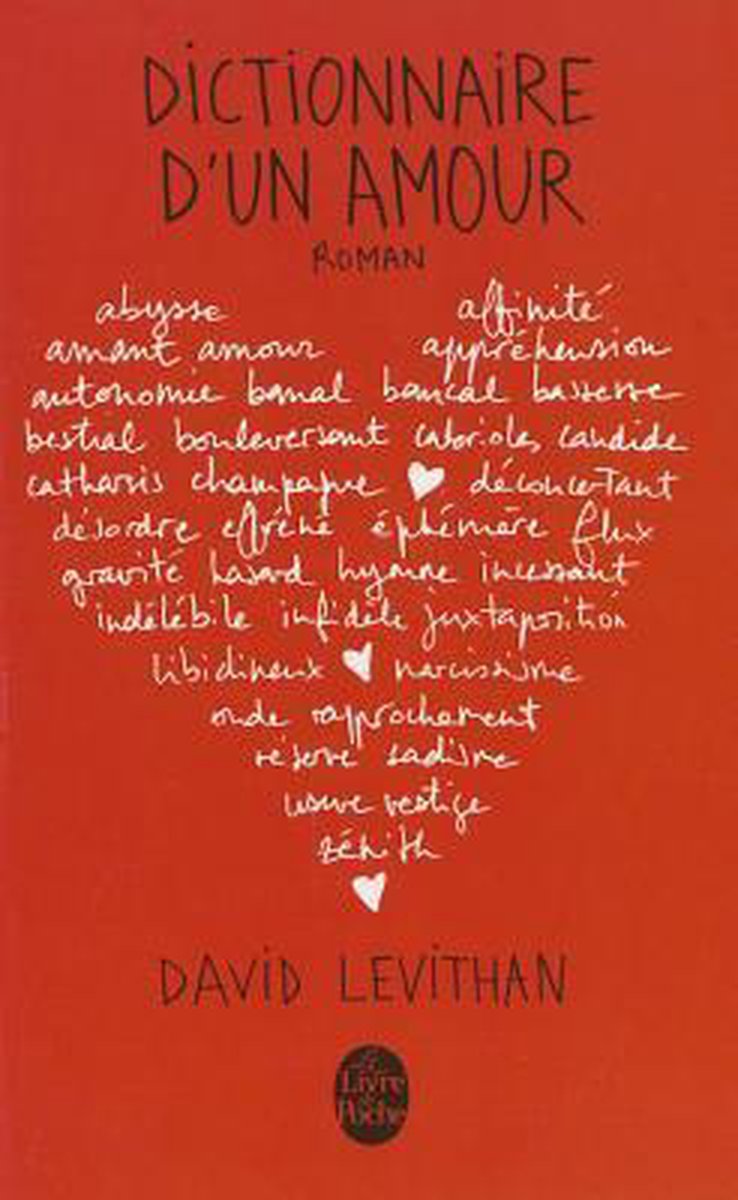 DICTIONNAIRE
D'UN AMOUR
ROMAN
abysse affinité
amant amour appréhension
autonomie banal bancal bassesse
bestial bouleversant cabrioles candide
catharsis champagne déconcertant
désordre effréné éphémère flux
gravité hasard hymne incessant
indélébile infidèle juxtaposition
libidineux narcissisme
onde rapprochement
réservé sadisme
usure vestige
zénith
DAVID LEVITHAN
Le
Livre
de
Poche